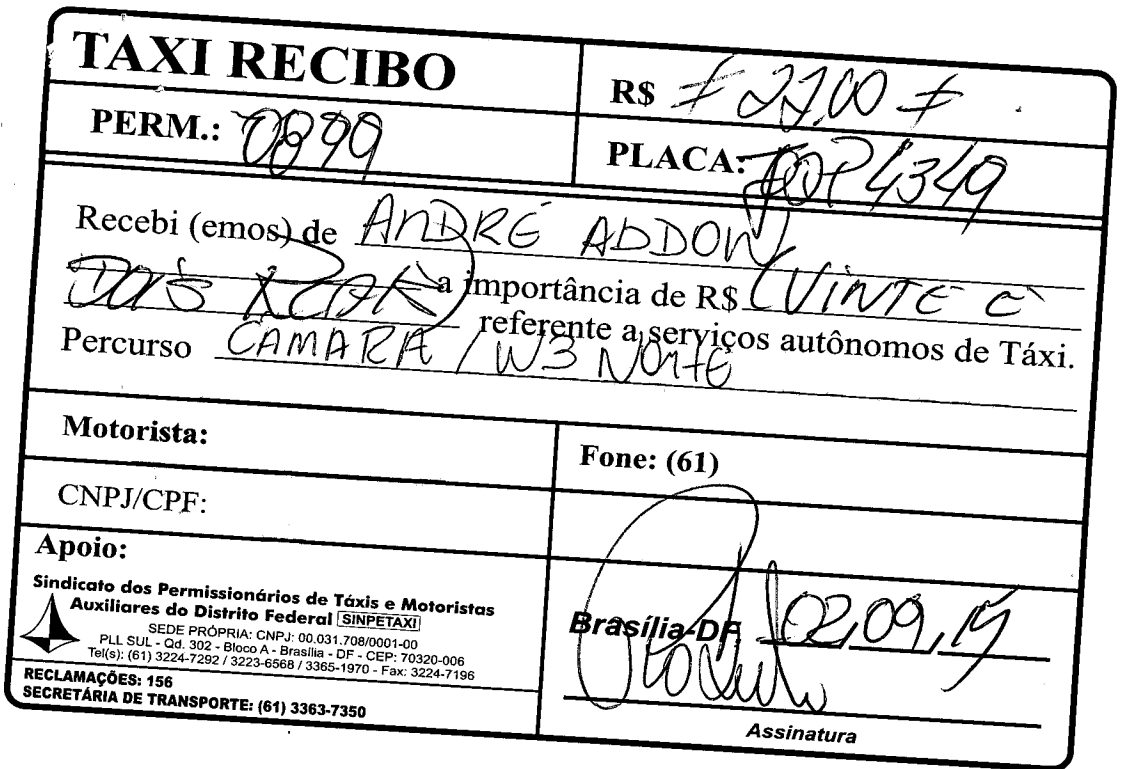 TAXI RECIBO
R$ ≠ 22,00 ≠
PERM.: 0899
PLACA: 4349
Recebi (emos) de ANDRÉ ADDOW
a importância de R$ (VINTE E
DOIS REAIS) referente a serviços autônomos de Táxi.
Percurso CAMARA / W3 NORTE
Motorista:
Fone: (61)
CNPJ/CPF:
Apoio:
Sindicato dos Permissionários de Táxis e Motoristas
Auxiliares do Distrito Federal SINPETAXI
SEDE PRÓPRIA: CNPJ: 00.031.708/0001-00
PLL SUL - Qd. 302 - Bloco A - Brasília - DF - CEP: 70320-006
Tel(s): (61) 3224-7292 / 3223-6568 / 3365-1970 - Fax: 3224-7196
RECLAMAÇÕES: 156
SECRETÁRIA DE TRANSPORTE: (61) 3363-7350
Brasília-DF 02,09,
Assinatura